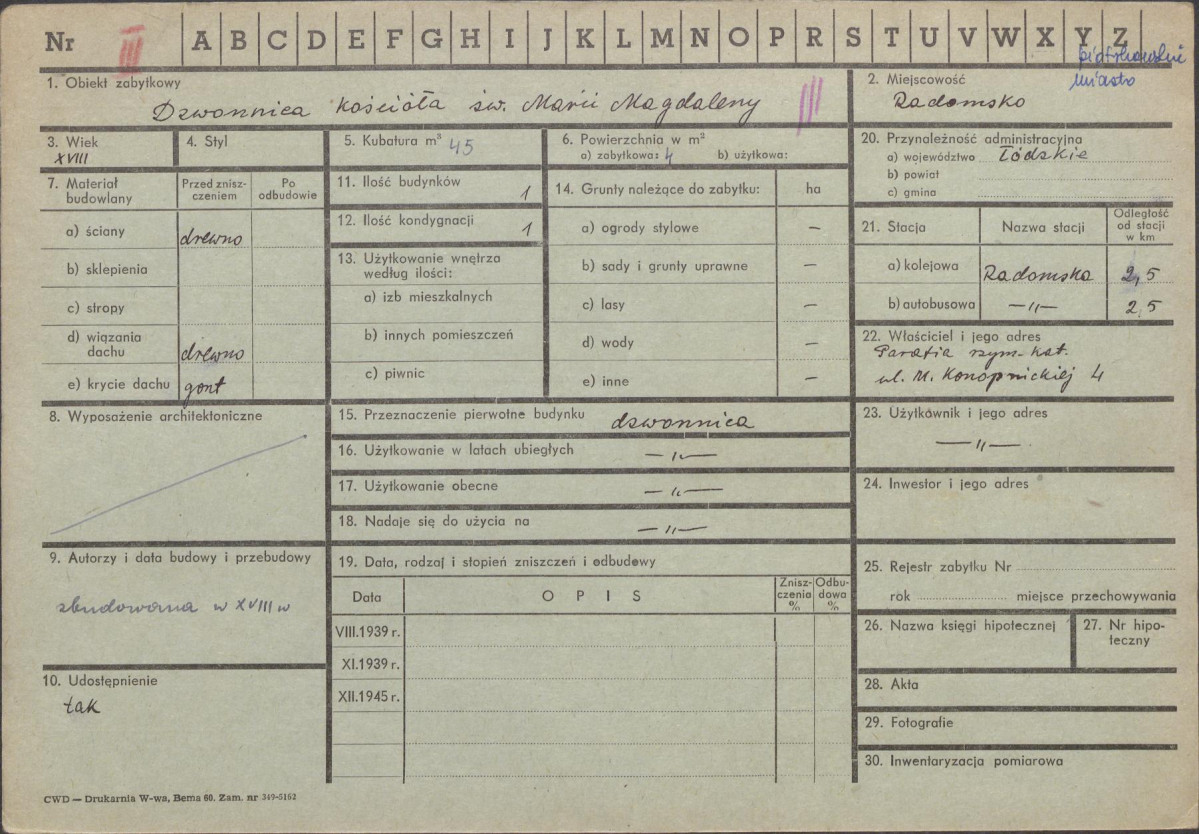 Nr III A B C D E F G H I J K L M N O P R S T U V W X Y Z
piotrkowskie
miasto
1. Obiekt zabytkowy
Dzwonnica kościóła św. Marii Magdaleny III
2. Miejscowość
Radomsko
3. Wiek
XVIII
4. Styl
5. Kubatura m³ 45
6. Powierzchnia w m²
a) zabytkowa: 4 b) użytkowa:
20. Przynależność administracyjna
a) województwo Łódzkie
b) powiat
c) gmina
7. Materiał budowlany
Przed zniszczeniem
Po odbudowie
a) ściany drewno
b) sklepienia
c) stropy
d) wiązania dachu drewno
e) krycie dachu gont
11. Ilość budynków 1
12. Ilość kondygnacji 1
13. Użytkowanie wnętrza według ilości:
a) izb mieszkalnych
b) innych pomieszczeń
c) piwnic
14. Grunty należące do zabytku: ha
a) ogrody stylowe —
b) sady i grunty uprawne —
c) lasy —
d) wody —
e) inne —
21. Stacja Nazwa stacji Odległość od stacji w km
a) kolejowa Radomska 2,5
b) autobusowa —„— 2,5
22. Właściciel i jego adres
Parafia rzym-kat.
ul. M. Konopnickiej 4
8. Wyposażenie architektoniczne
15. Przeznaczenie pierwotne budynku dzwonnica
16. Użytkowanie w latach ubiegłych —„—
17. Użytkowanie obecne —„—
18. Nadaje się do użycia na —„—
23. Użytkownik i jego adres
—„—
24. Inwestor i jego adres
9. Autorzy i data budowy i przebudowy
zbudowana w XVIII w
10. Udostępnienie
tak
19. Data, rodzaj i stopień zniszczeń i odbudowy
Data OPIS Zniszczenia % Odbudowa %
VIII.1939 r.
XI.1939 r.
XII.1945 r.
25. Rejestr zabytku Nr
rok miejsce przechowywania
26. Nazwa księgi hipotecznej
27. Nr hipoteczny
28. Akta
29. Fotografie
30. Inwentaryzacja pomiarowa
CWD — Drukarnia W-wa, Bema 60. Zam. nr 349-5162